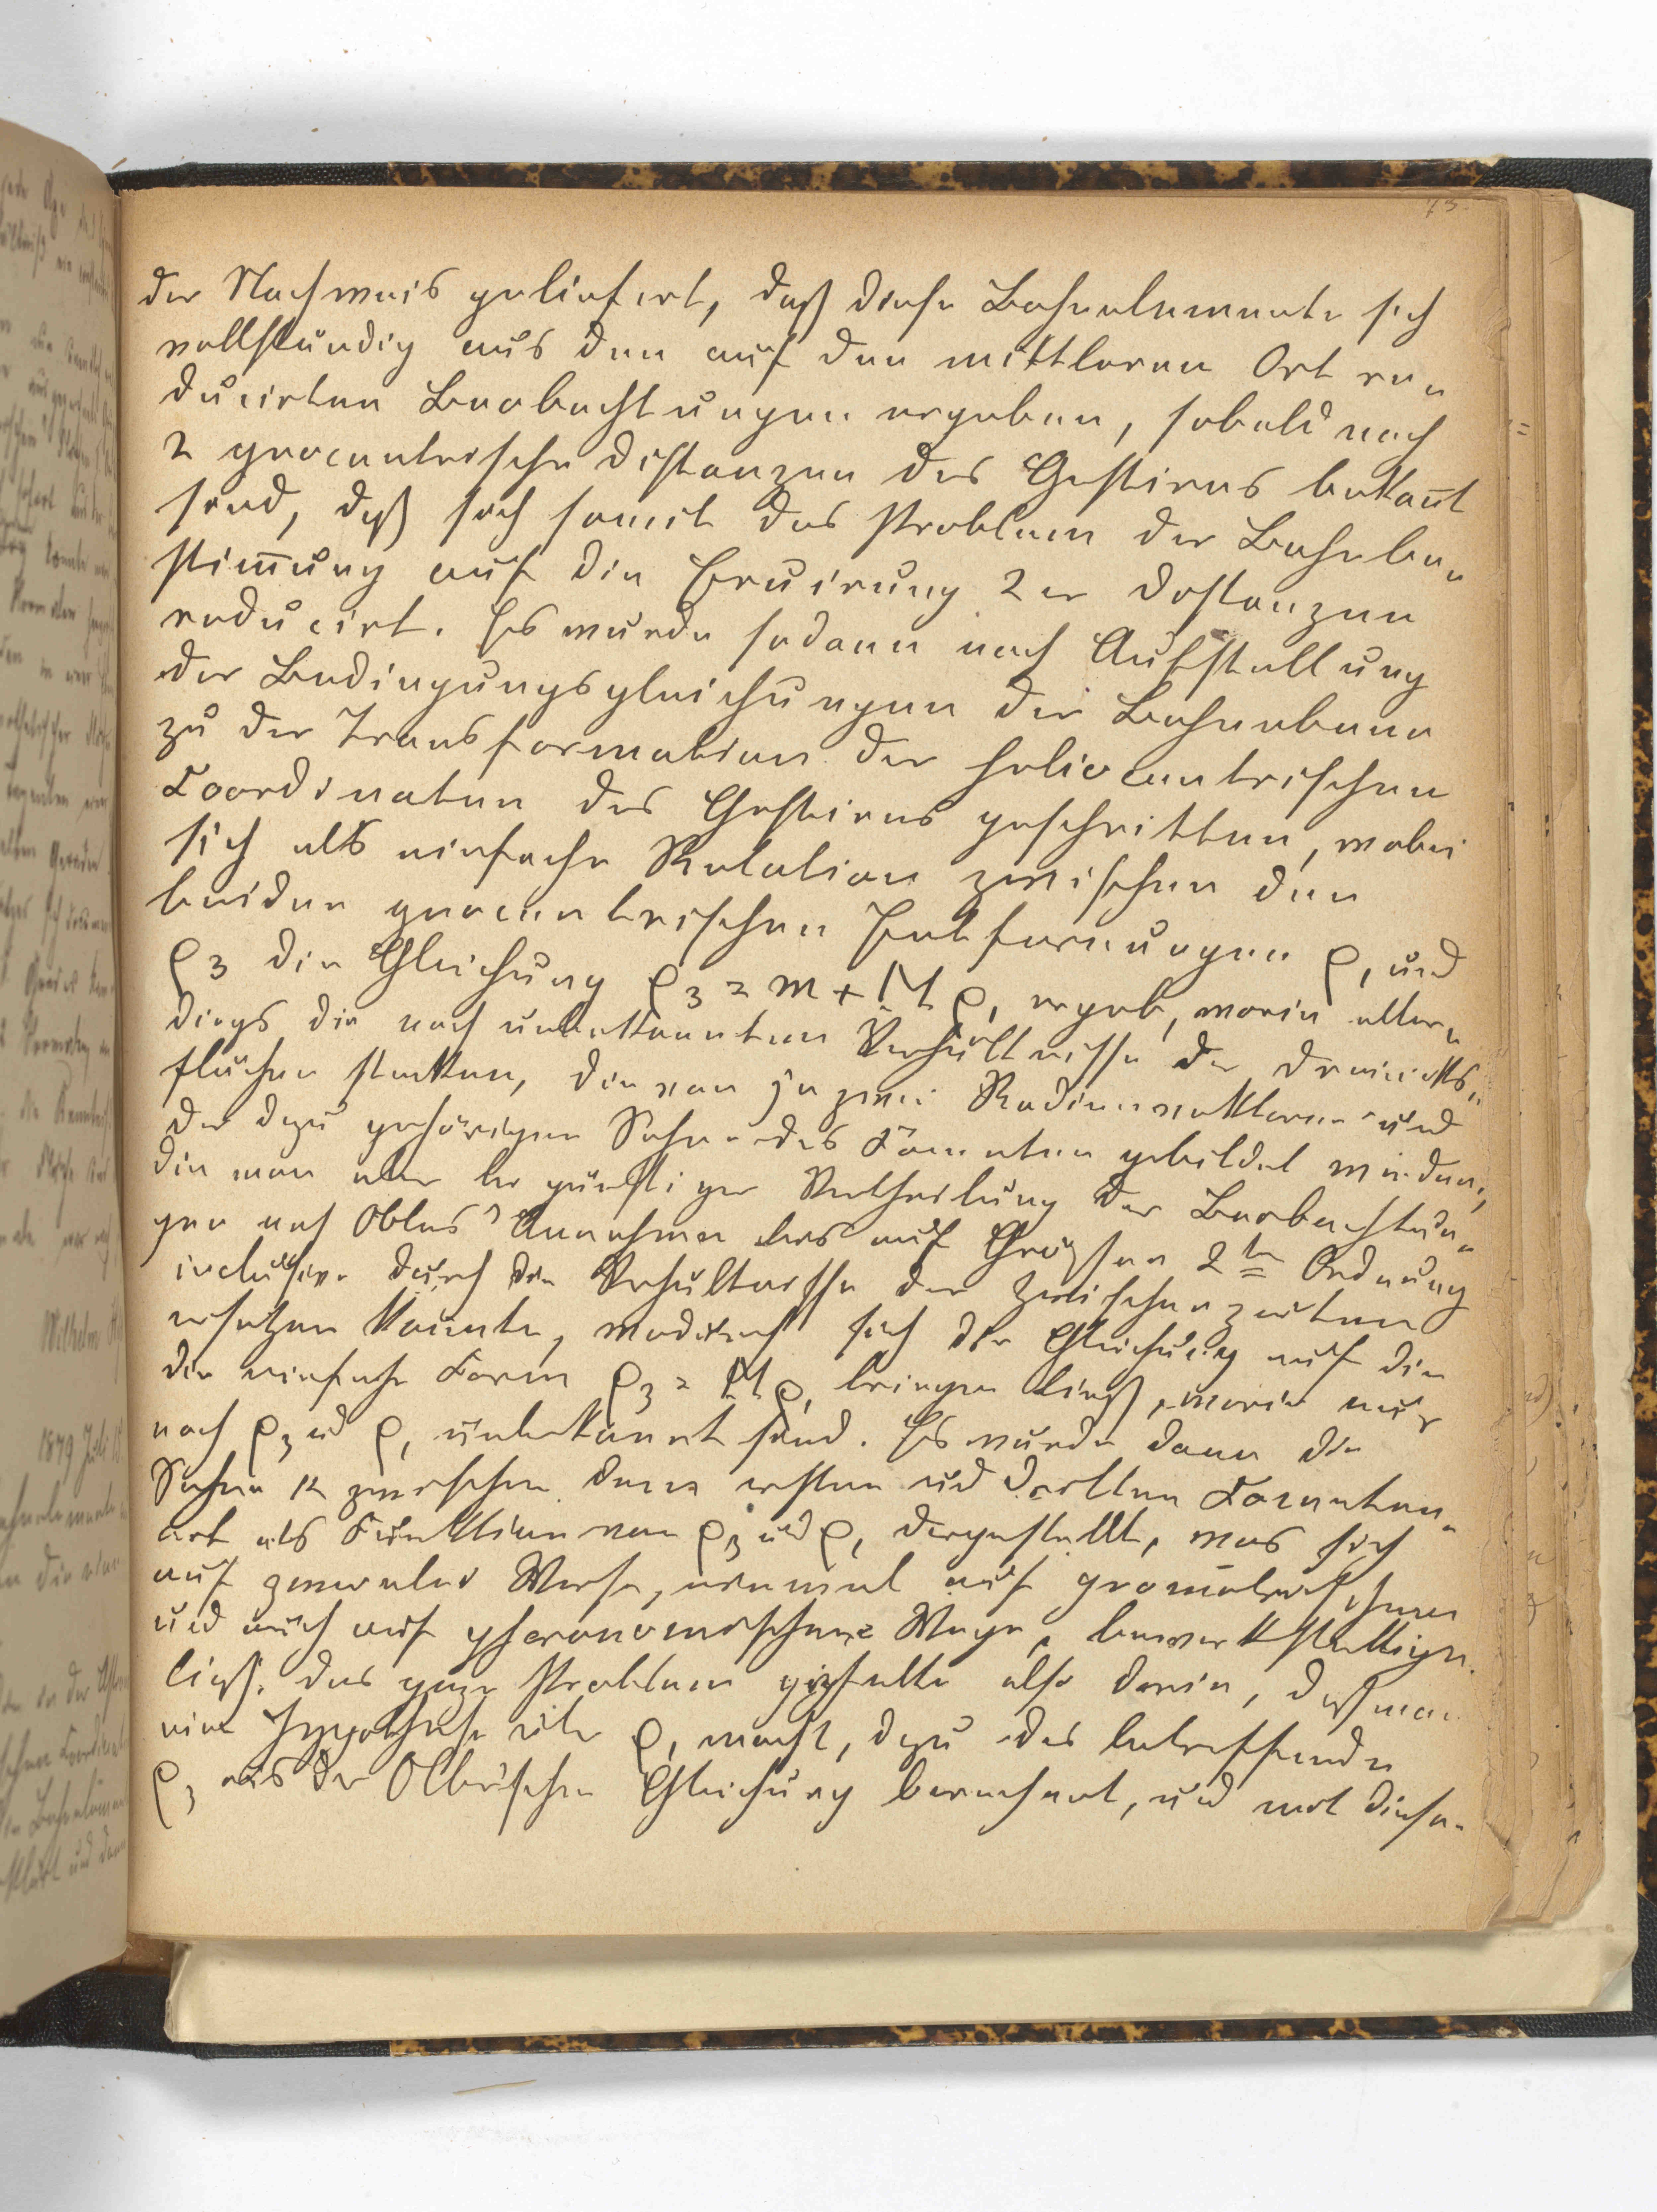 73.
der Nachweis geliefert, daß diese Bahnelemente sich
vollständig aus den auf den mittleren Ort re„
ducirten Beobachtungen ergeben, sobald noch
2 geocentrische Distanzen des Gestirns bekan̄t
sind, daß sich somit das Problem der Bahnbe„
stim̄ung auf die Eruirung 2er Distanzen
reducirt. Es wurde sodann nach Aufstellung
der Bedingungsgleichungen der Bahnebene
zu der Transformation der heliocentrischen
Coordinaten des Gestirns geschritten, wobei
sich als einfache Relation zwischen den
beiden geocentrischen Entfernungen ρ₁ und
ρ₃ die Gleichung ρ₃ = m + M ρ₁ ergab, worin aller„
dings die noch unbekannten Verhältnisse der Dreiecks„
flächen stecken, die von je zwei Radienvektoren und
der dazu gehörigen Sehne des Cometen gebildet werden,
die man aber bei günstiger Vertheilung der Beobachtun„
gen nach Olbers' Annahme bis auf Größen 2ter Ordnung
inclusive durch die Verhältnisse der Zwischenzeiten
ersetzen konnte, wodurch sich die Gleichung auf die
die einfache Form ρ₃ = M ρ₁ bringen ließ, worin nur
noch ρ₃ ud ρ₁ unbekannt sind. Es wurde dann die
Sehne k zwischen dem ersten und dritten Cometen„
ort als Funktion von ρ₃ und ρ₁ dargestellt, was sich
auf zweierlei Weise, einmal auf geometrischem
und auch auf phoronomischem Wege, bewerkstelligen
ließ. Das ganze Problem gipfelte also darin, daß man
eine Hypothese über ρ₁ macht, dazu das betreffende
ρ₃ aus der Olbers'schen Gleichung berechnet, und mit diesen